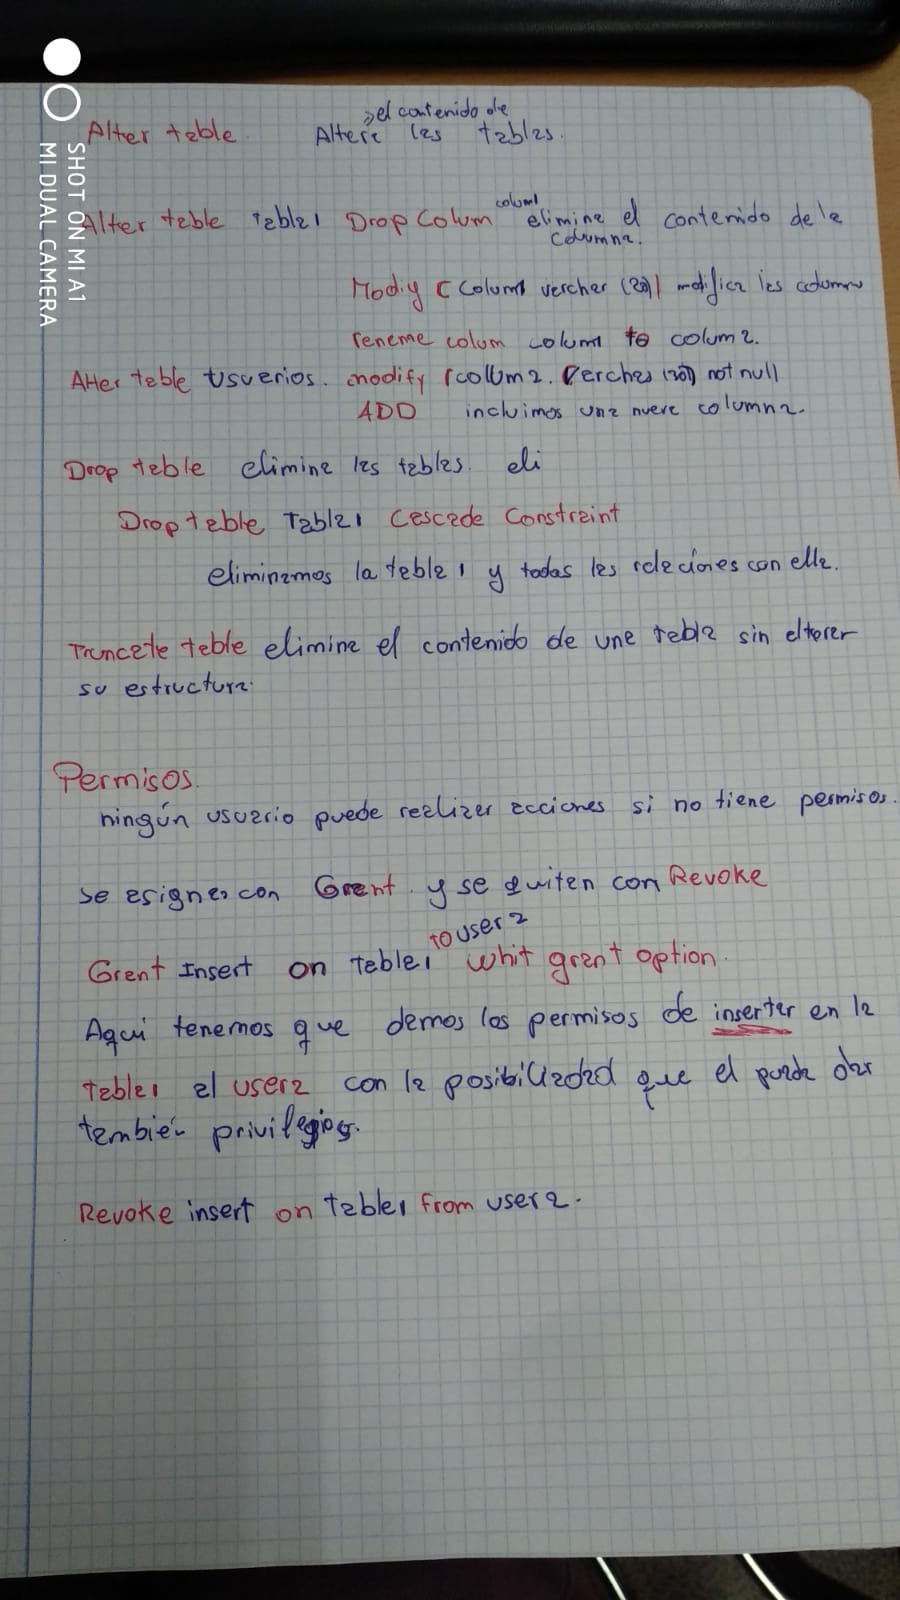 SHOT ON MI A1
MI DUAL CAMERA
el contenido de
Alter table Altera las tablas.
colum1
Alter table Tabla1 Drop Colum elimina el contenido de la
columna.
Modiy (Colum1 varchar (20)) modifica las column
rename colum colum1 to colum2.
Alter table Usuarios. modify (collum2. Varchar (30)) not null
ADD incluimos una nueva columna.
Drop table elimina las tablas. eli
Drop table Tabla1 Cascade Constraint
eliminamos la tabla1 y todas las relaciones con ella.
Truncate table elimina el contenido de una tabla sin elterar
su estructura.
Permisos.
ningún usuario puede realizar acciones si no tiene permisos.
Se asignan con Grant. y se quitan con Revoke
to user2
Grant Insert on tabla1 Whit grant option.
Aqui tenemos que damos los permisos de insertar en la
tabla1 al user2 con la posibilidad que el pueda dar
también privilegios.
Revoke insert on tabla1 from user2.